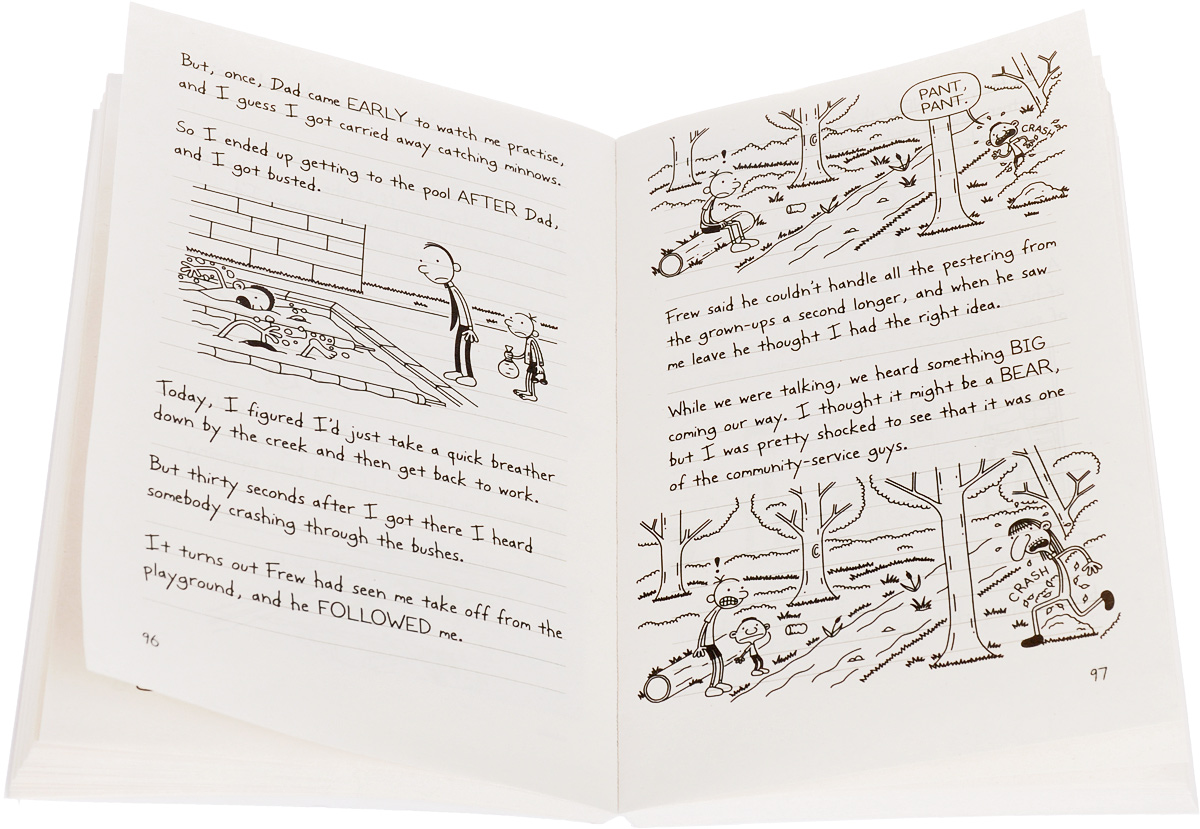 But, once, Dad came EARLY to watch me practise,
and I guess I got carried away catching minnows.
So I ended up getting to the pool AFTER Dad,
and I got busted.
Today, I figured I'd just take a quick breather
down by the creek and then get back to work.
But thirty seconds after I got there I heard
somebody crashing through the bushes.
It turns out Frew had seen me take off from the
playground, and he FOLLOWED me.
96
PANT,
PANT.
CRASH
!
Frew said he couldn't handle all the pestering from
the grown-ups a second longer, and when he saw
me leave he thought I had the right idea.
While we were talking, we heard something BIG
coming our way. I thought it might be a BEAR,
but I was pretty shocked to see that it was one
of the community-service guys.
!
CRASH
97